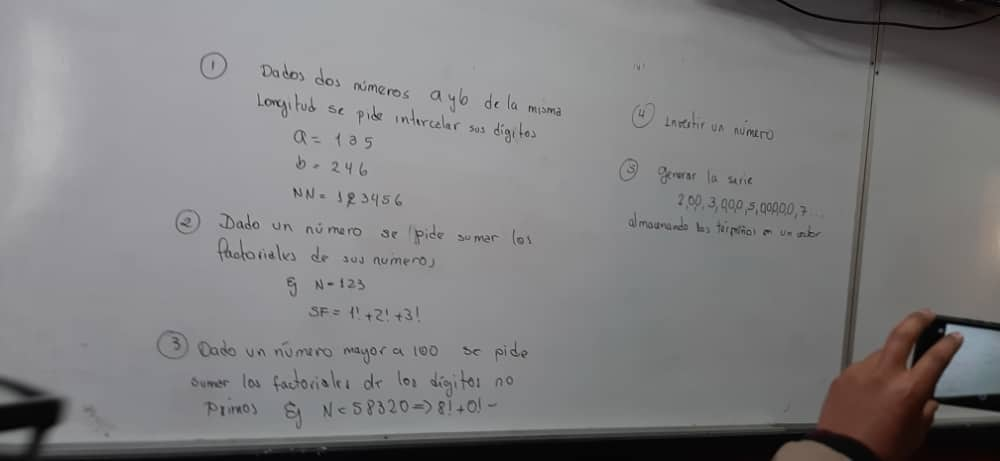 ① Dados dos números a y b de la misma
Longitud se pide intercalar sus dígitos
a = 135
b = 246
NN = 123456
② Dado un número se pide sumar los
factoriales de sus numeros
Ej N = 123
SF = 1! + 2! + 3!
③ Dado un número mayor a 100 se pide
sumar los factoriales de los dígitos no
primos Ej N = 58320 => 8! + 0! -
④ Invertir un número
⑤ generar la serie
2,0,0, 3, 0,0,0, 5, 0,0,0,0,0, 7...
almacenando los términos en un vector